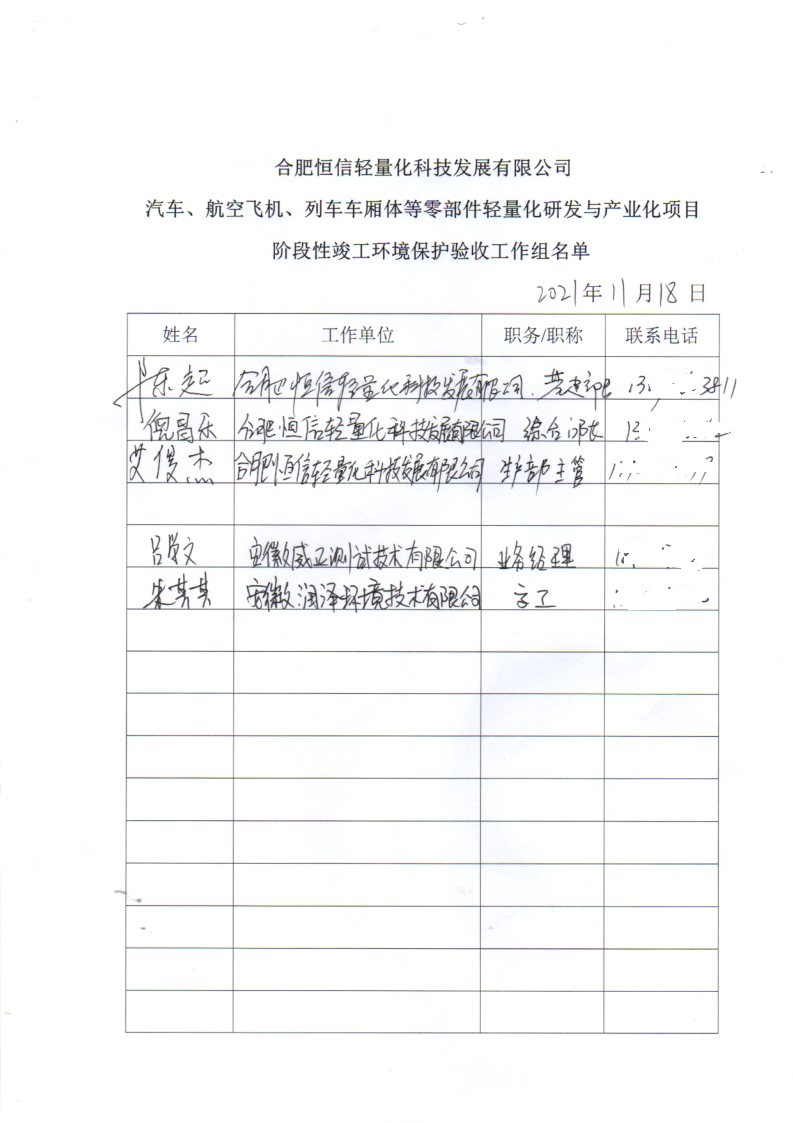 合肥恒信轻量化科技发展有限公司
汽车、航空飞机、列车车厢体等零部件轻量化研发与产业化项目
阶段性竣工环境保护验收工作组名单
2021年11月18日
姓名 工作单位 职务/职称 联系电话
合肥恒信轻量化科技发展有限公司 3811
倪昌乐 合肥恒信轻量化科技发展有限公司 综合部长
艾俊杰 合肥恒信轻量化科技发展有限公司 生产部主管
安徽威正测试技术有限公司 业务经理
朱其其 安徽润泽环境技术有限公司